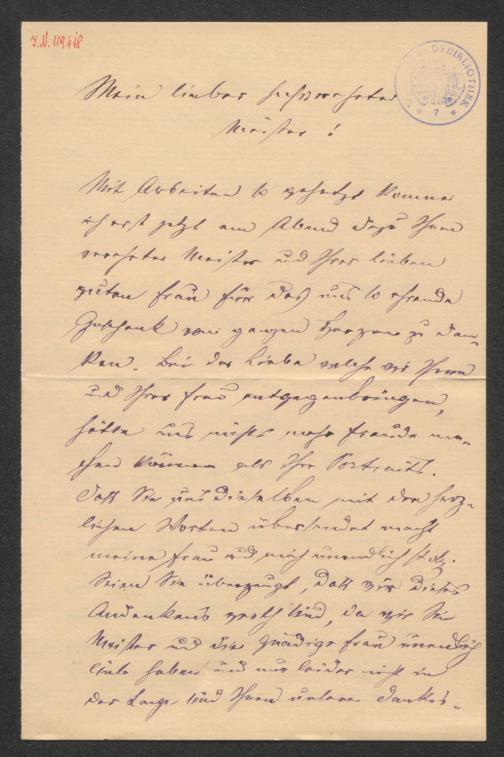 I.N. 119.418
STADTBIBLIOTHEK
Mein lieber hochverehrter
Meister!
Mit Arbeiten so gehetzt komme
ich erst jetzt am Abend dazu Ihnen
verehrter Meister und Ihrer lieben
guten Frau für das uns so ehrende
Geschenk vom ganzen Herzen zu dan-
ken. Bei der Liebe welche wir Ihnen
und Ihrer Frau entgegenbringen,
hätte uns nichts mehr Freude ma-
chen können als Ihr Portrait.
Daß Sie uns dieselben mit den herz-
lichen Worten übersendet macht
meine Frau und mich unendlich stolz.
Seien Sie überzeugt, daß wir dieses
Andenkens werth sind, da wir Sie
Meister und die gnädige Frau unendlich
liebe haben und nur leider nicht in
der Lage sind Ihnen unsere Dankes-